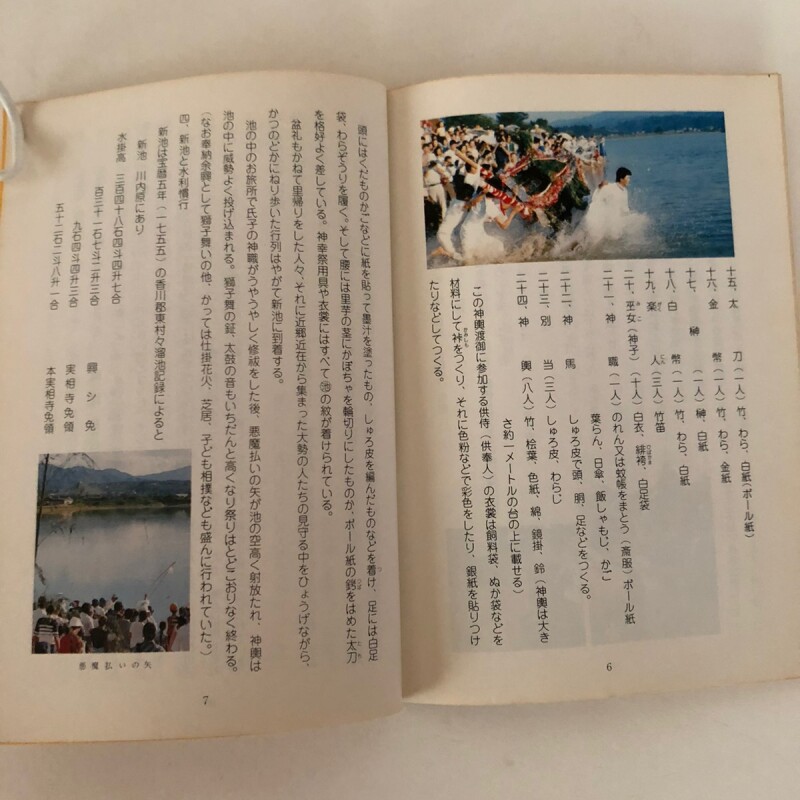 十五、太 刀(一人)竹、わら、白紙(ボール紙)
十六、金 幣(一人)竹、わら、金紙
十七、榊 (一人)榊、白紙
十八、白 幣(一人)竹、わら、白紙
十九、楽 人(三人)竹笛
二十、巫女(神子)(十人)白衣、緋袴、白足袋
二十一、神 職(一人)のれん又は蚊帳をまとう(斎服)ボール紙
葉らん、日傘、飯しゃもじ、かご
二十二、神 馬 しゅろ皮で頭、胴、足などをつくる。
二十三、別 当(三人)しゅろ皮、わらじ
二十四、神 輿(八人)竹、桧葉、色紙、綿、鏡掛、鈴(神輿は大き
さ約一メートルの台の上に載せる)
この神輿渡御に参加する供侍(供奉人)の衣裳は飼料袋、ぬか袋などを
材料にして裃をつくり、それに色粉などで彩色をしたり、銀紙を貼りつけ
たりなどしてつくる。
6
頭にはくだものかごなどに紙を貼って墨汁を塗ったもの、しゅろ皮を編んだものなどを着け、足には白足
袋、わらぞうりを履く。そして腰には里芋の茎にかぼちゃを輪切りにしたものか、ボール紙の鍔をはめた太刀
を格好よく差している。神幸祭用具や衣裳にはすべて㊝の紋が着けられている。
盆礼もかねて里帰りをした人々、それに近郷近在から集まった大勢の人たちの見守る中をひょうげながら、
かつのどかにねり歩いた行列はやがて新池に到着する。
池の中のお旅所で氏子の神職がうやうやしく修祓をした後、悪魔払いの矢が池の空高く射放たれ、神輿は
池の中に威勢よく投げ込まれる。獅子舞の鉦、太鼓の音もいちだんと高くなり祭りはとどこおりなく終わる。
(なお奉納余興として獅子舞いの他、かっては仕掛花火、芝居、子ども相撲なども盛んに行われていた。)
四、新池と水利慣行
新池は宝暦五年(一七五五)の香川郡東村々溜池記録によると
新池 川内原にあり
水掛高 三百四十八石四斗四升七合
百三十一石七斗二升三合 興シ免
九石四斗四升二合 実相寺免領
五十二石二斗八升一合 本実相寺免領
悪魔払いの矢
7